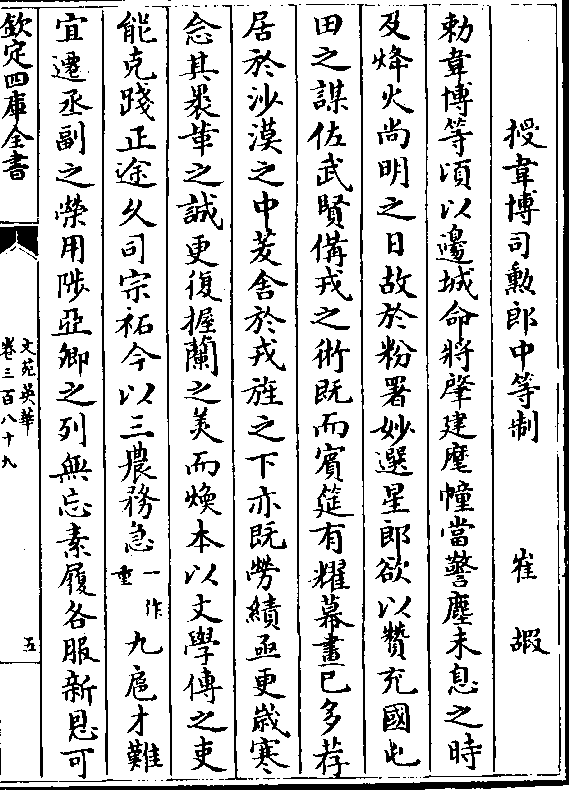 授韋博司勲郎中等制　　崔嘏
勅韋博等頃以邊城命將肇建麾幢當警塵未息之時
及烽火尚明之日故於粉署妙選星郎欲以贊充國屯
田之謀佐武賢偹戎之術既而賓筵有耀幕畫已多荐
居於沙漠之中茇舍於戎旌之下亦既勞績亟更歲寒
念其裘革之誠更復握蘭之美而煥本以文學傳之吏
能克踐正途久司宗祏今以三農務急一作重九扈才難
宜遷丞副之榮用陟亞卿之列無忘素履各服新恩可
欽定四庫全書
文苑英華
卷三百八十九
五